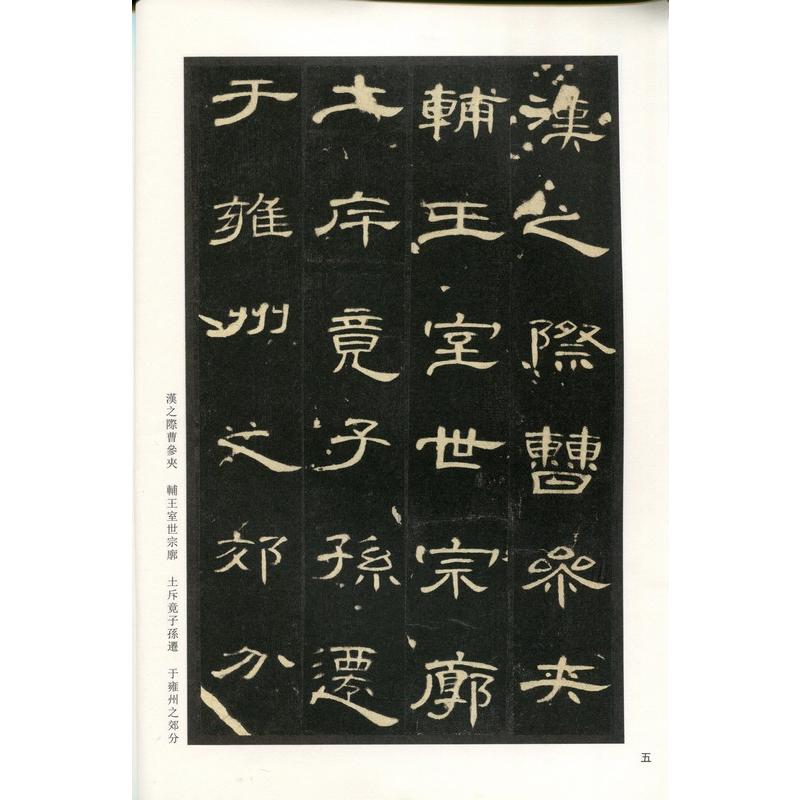 漢之際曹參夾
輔王室世宗廓
土斥竟子孫遷
于雍州之郊分
漢之際曹參夾 輔王室世宗廓 土斥竟子孫遷 于雍州之郊分
五